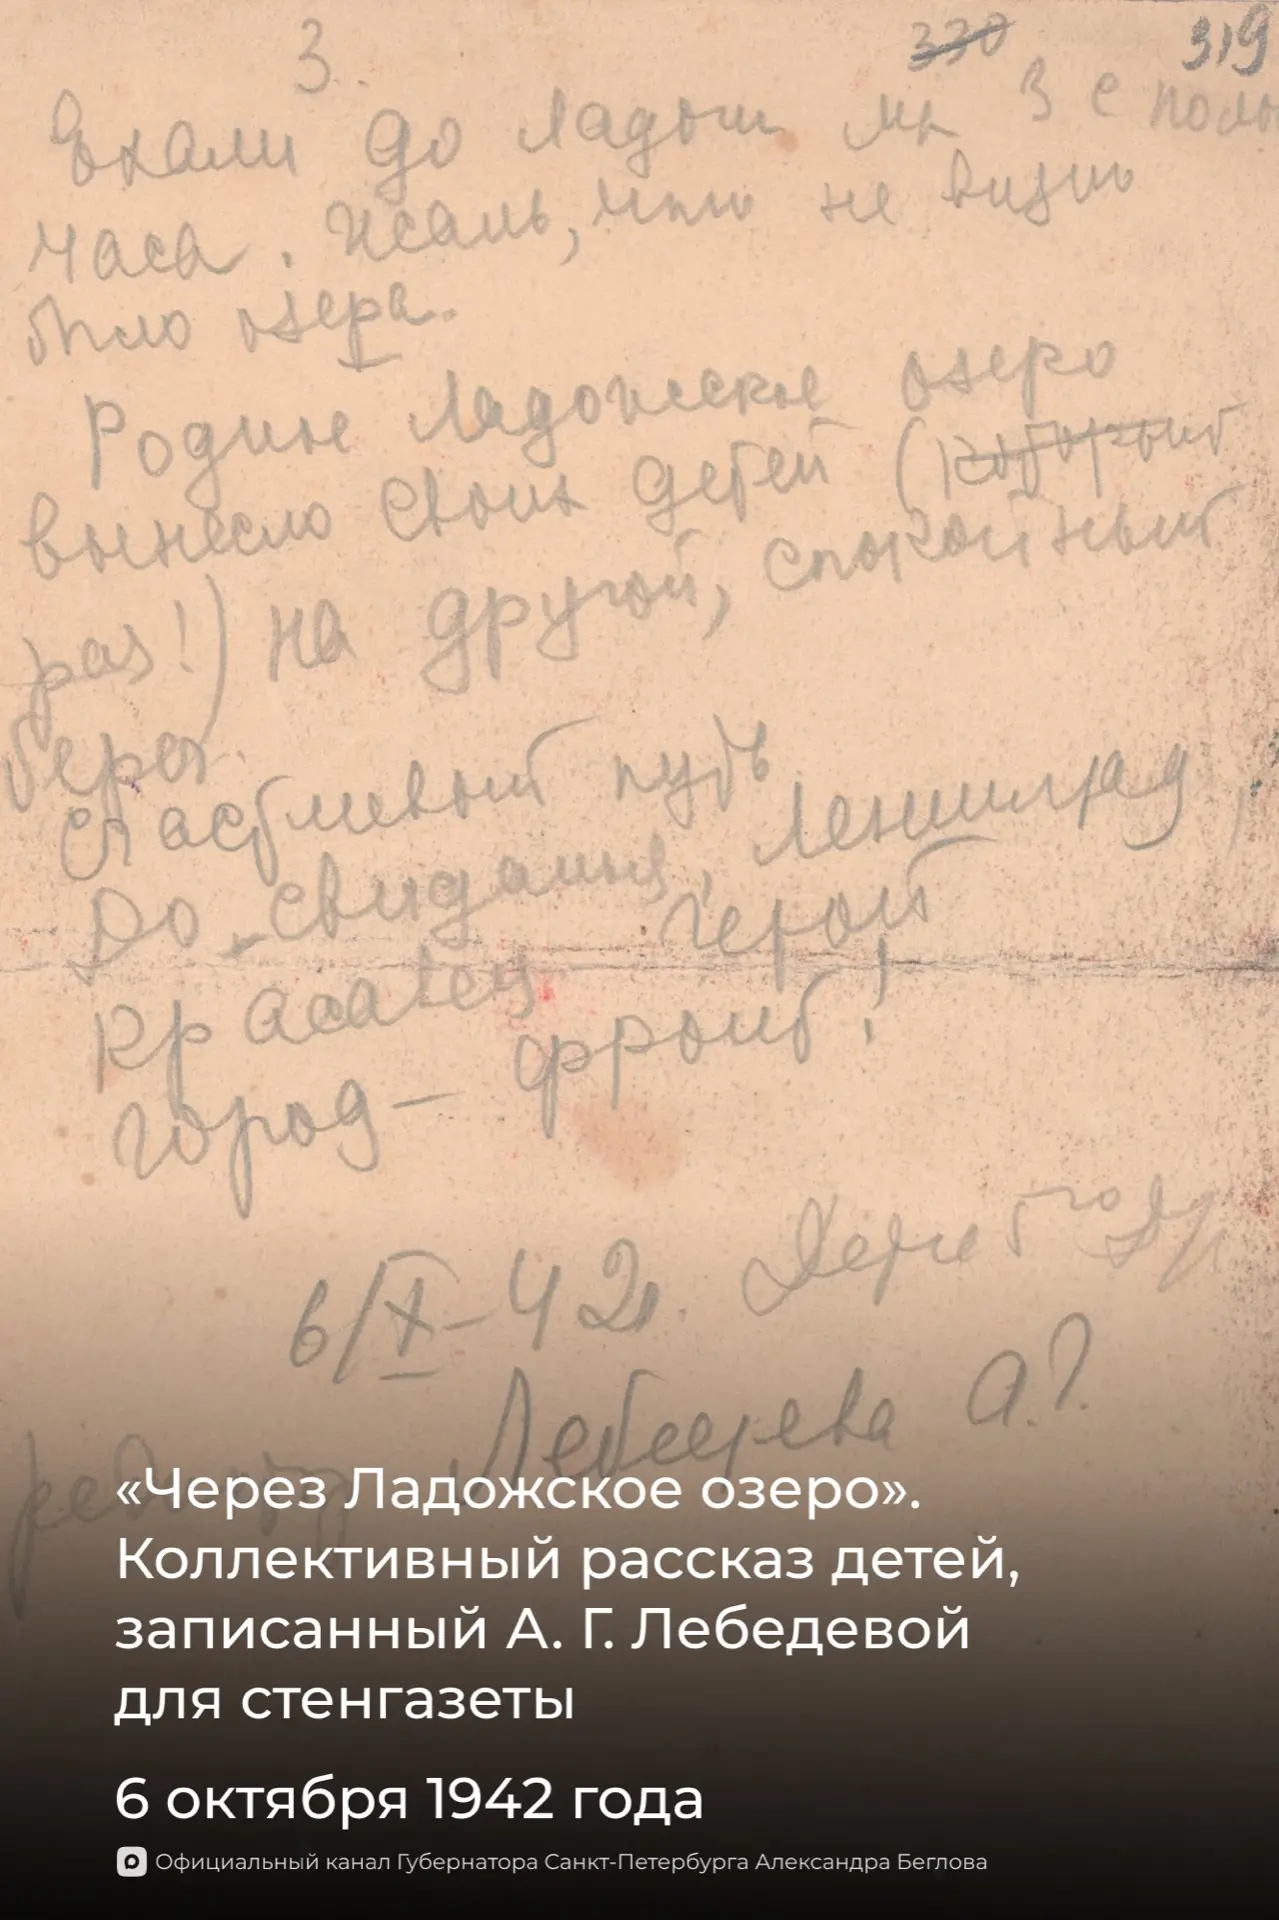 3.
330 319
Ехали до Ладоги мы 3 с поло
часа. Жаль, что не видно
было озера.
Родное Ладожское озеро
вынесло своих детей (который
раз!) на другой, спокойный
берег.
Счастливый путь
До свидания, Ленинград,
Красавец герой
город — фронт!
6/X-42г.
Лебедева А.Г.
«Через Ладожское озеро».
Коллективный рассказ детей,
записанный А. Г. Лебедевой
для стенгазеты
6 октября 1942 года
Официальный канал Губернатора Санкт-Петербурга Александра Беглова